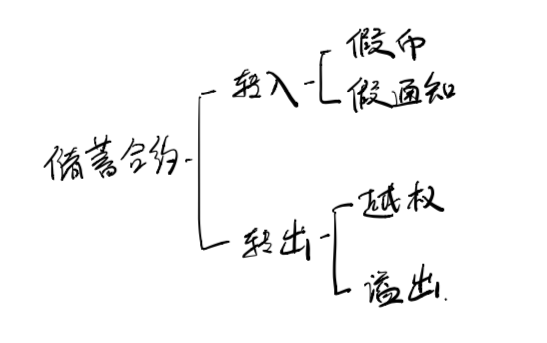 储蓄合约
转入
假币
假通知
转出
越权
溢出